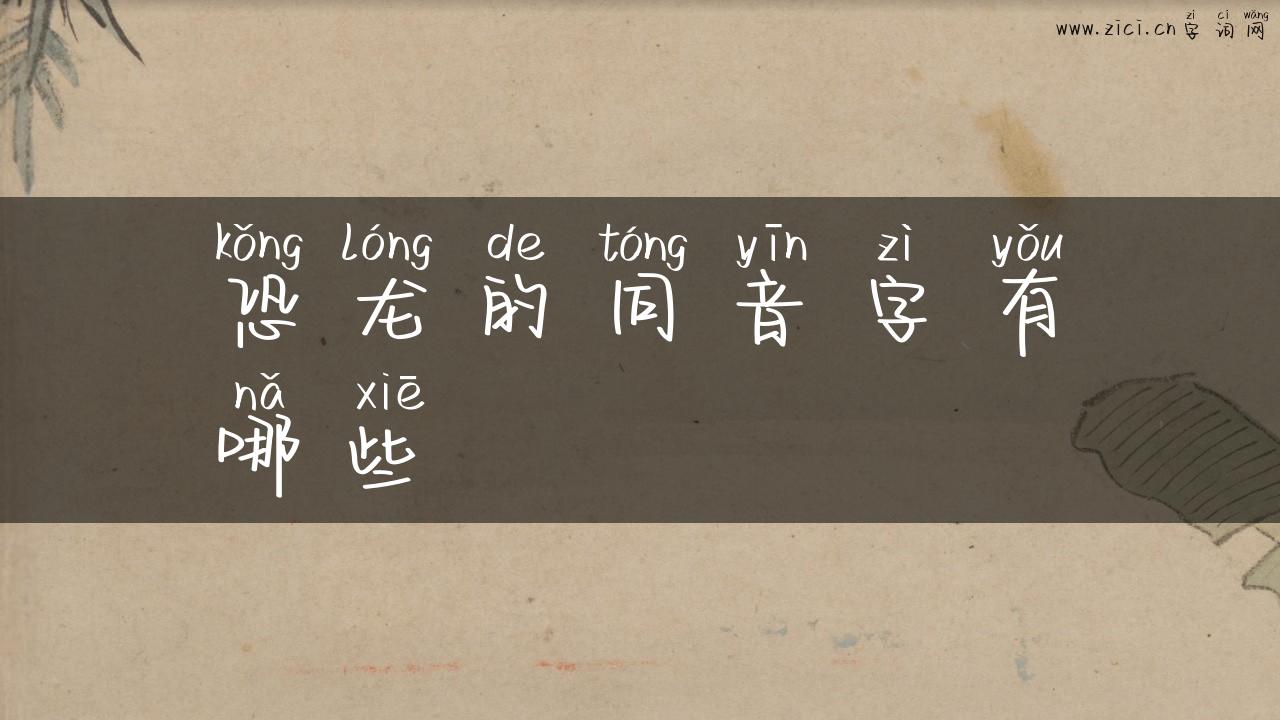 zì cí wǎng
www.zici.cn 字 词 网
kǒng lóng de tóng yīn zì yǒu
恐 龙 的 同 音 字 有
nǎ xiē
哪 些